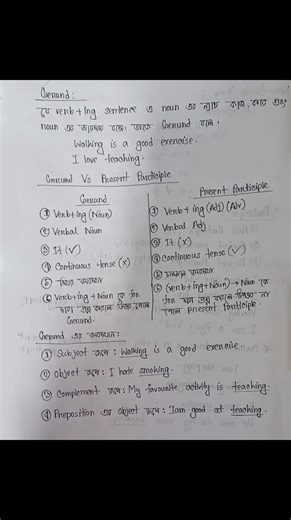 Gerund:
যে verb+ing sentence এ noun এর ন্যায় কাজ করে এবং
noun এর জায়গায় বসে তাকে Gerund বলে।
Walking is a good exercise.
I love teaching.
Gerund Vs Present Participle
Gerund
① Verb+ing (Noun)
② Verbal Noun
③ It (✓)
④ Continuous tense (X)
⑥ Verb+ing + Noun কে for
Gerund.
Present Participle
① Verb+ing (Adj) (Adv)
② Verbal Adj
③ It (X)
④ Continuous tense (✓)
⑥ (verb+ing+Noun) → Noun কে
for দ্বারা প্রশ্ন করলে উত্তর না
পেলে present participle.
Gerund এর অবস্থান:
① Subject রূপে: Walking is a good exercise
② Object রূপে: I hate smoking.
③ Complement রূপে: My favourite activity is teaching.
④ Preposition এর object রূপে: I am good at teaching.